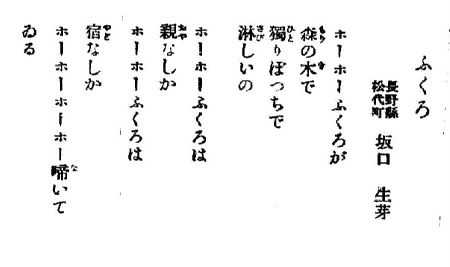 ふくろ
長野縣
松代町
坂口 生芽
ホーホーふくろが
森の木で
獨りぼつちで
淋しいの
ホーホーふくろは
親なしか
ホーホーふくろは
宿なしか
ホーホーホーホー啼いて
ゐる